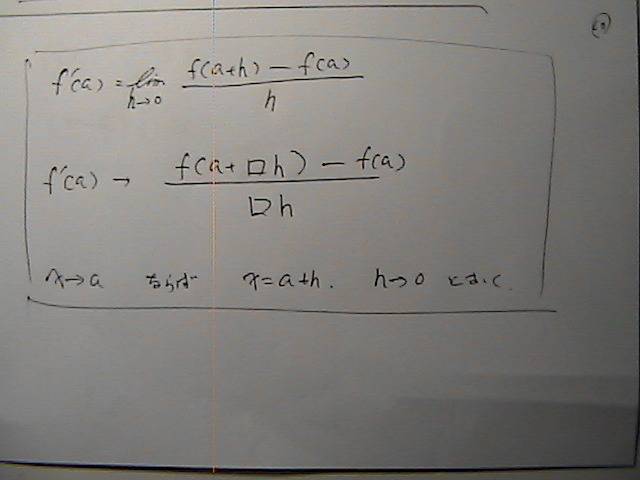 f'(a) = lim_{h→0} \frac{f(a+h) - f(a)}{h}
f'(a) → \frac{f(a+□h) - f(a)}{□h}
x→a ならば x=a+h. h→0 とおく.